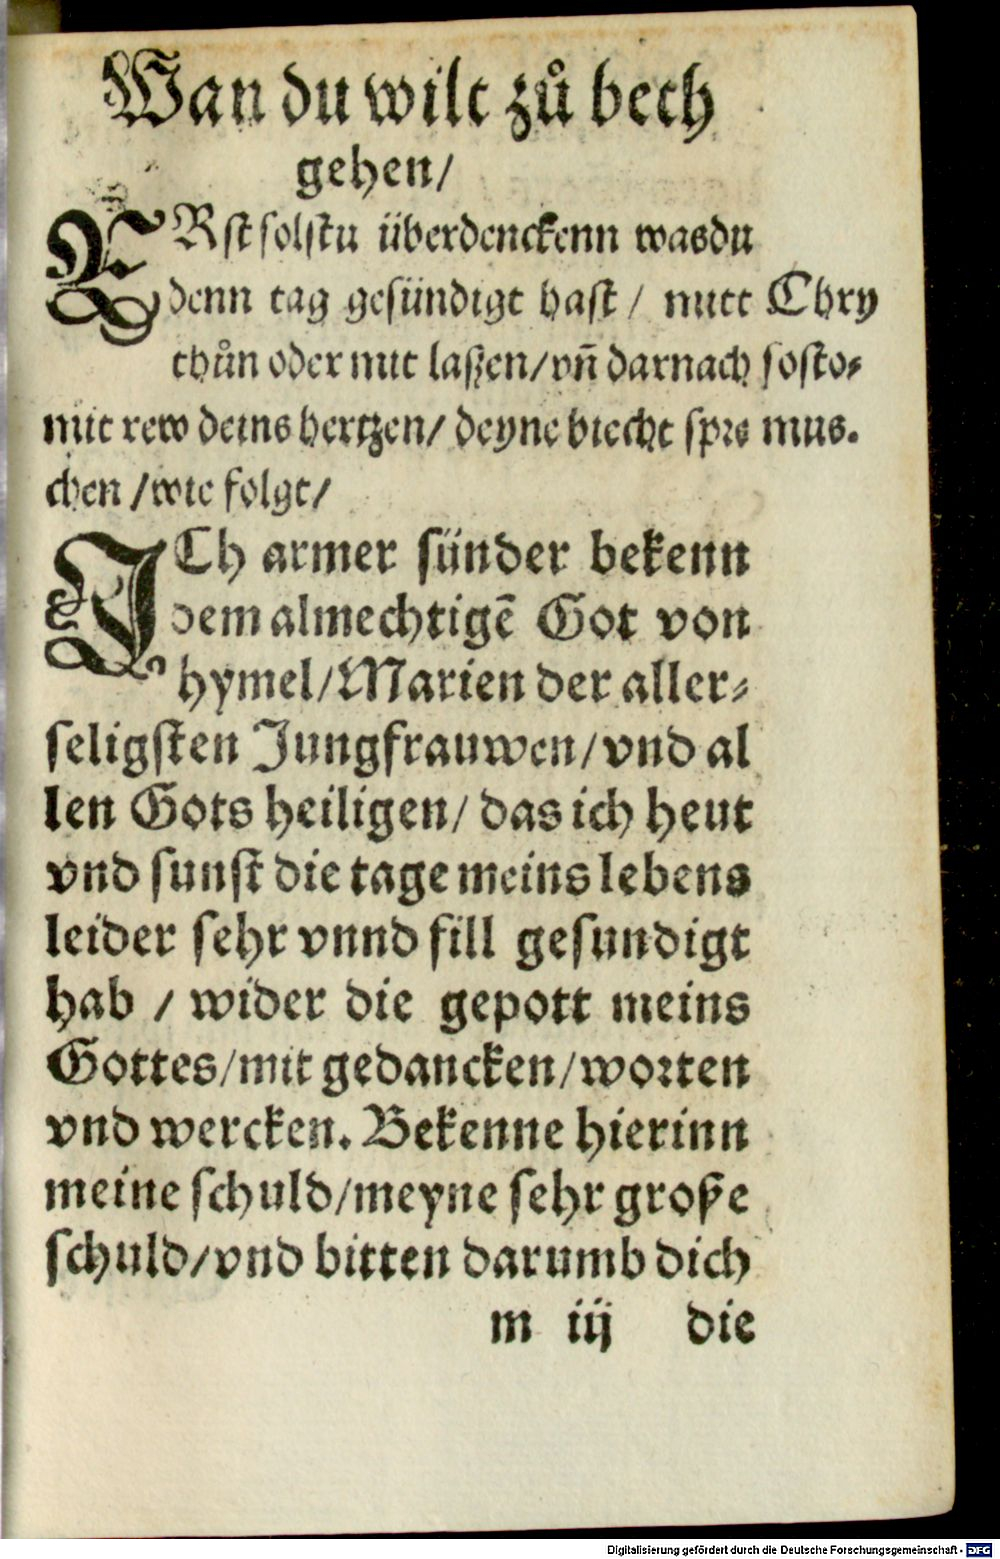 Wan du wilt zů beth
gehen/
ERst solstu überdenckenn wasdu
denn tag gesündigt hast / mitt Chry
thůn oder mit laßen/vñ darnach sosto⸗
mit rew deins hertzen/ deyne biecht spre mus.
chen /wie folgt/
ICh armer sünder bekenn
dem almechtigē Got von
hymel/Marien der aller⸗
seligsten Jungfrauwen/vnd al
len Gots heiligen/ das ich heut
vnd sunst die tage meins lebens
leider sehr vnnd fill gesundigt
hab / wider die gepott meins
Gottes/mit gedancken/worten
vnd wercken. Bekenne hierinn
meine schuld/meyne sehr große
schuld/vnd bitten darumb dich
m iij die
Digitalisierung gefördert durch die Deutsche Forschungsgemeinschaft - DFG